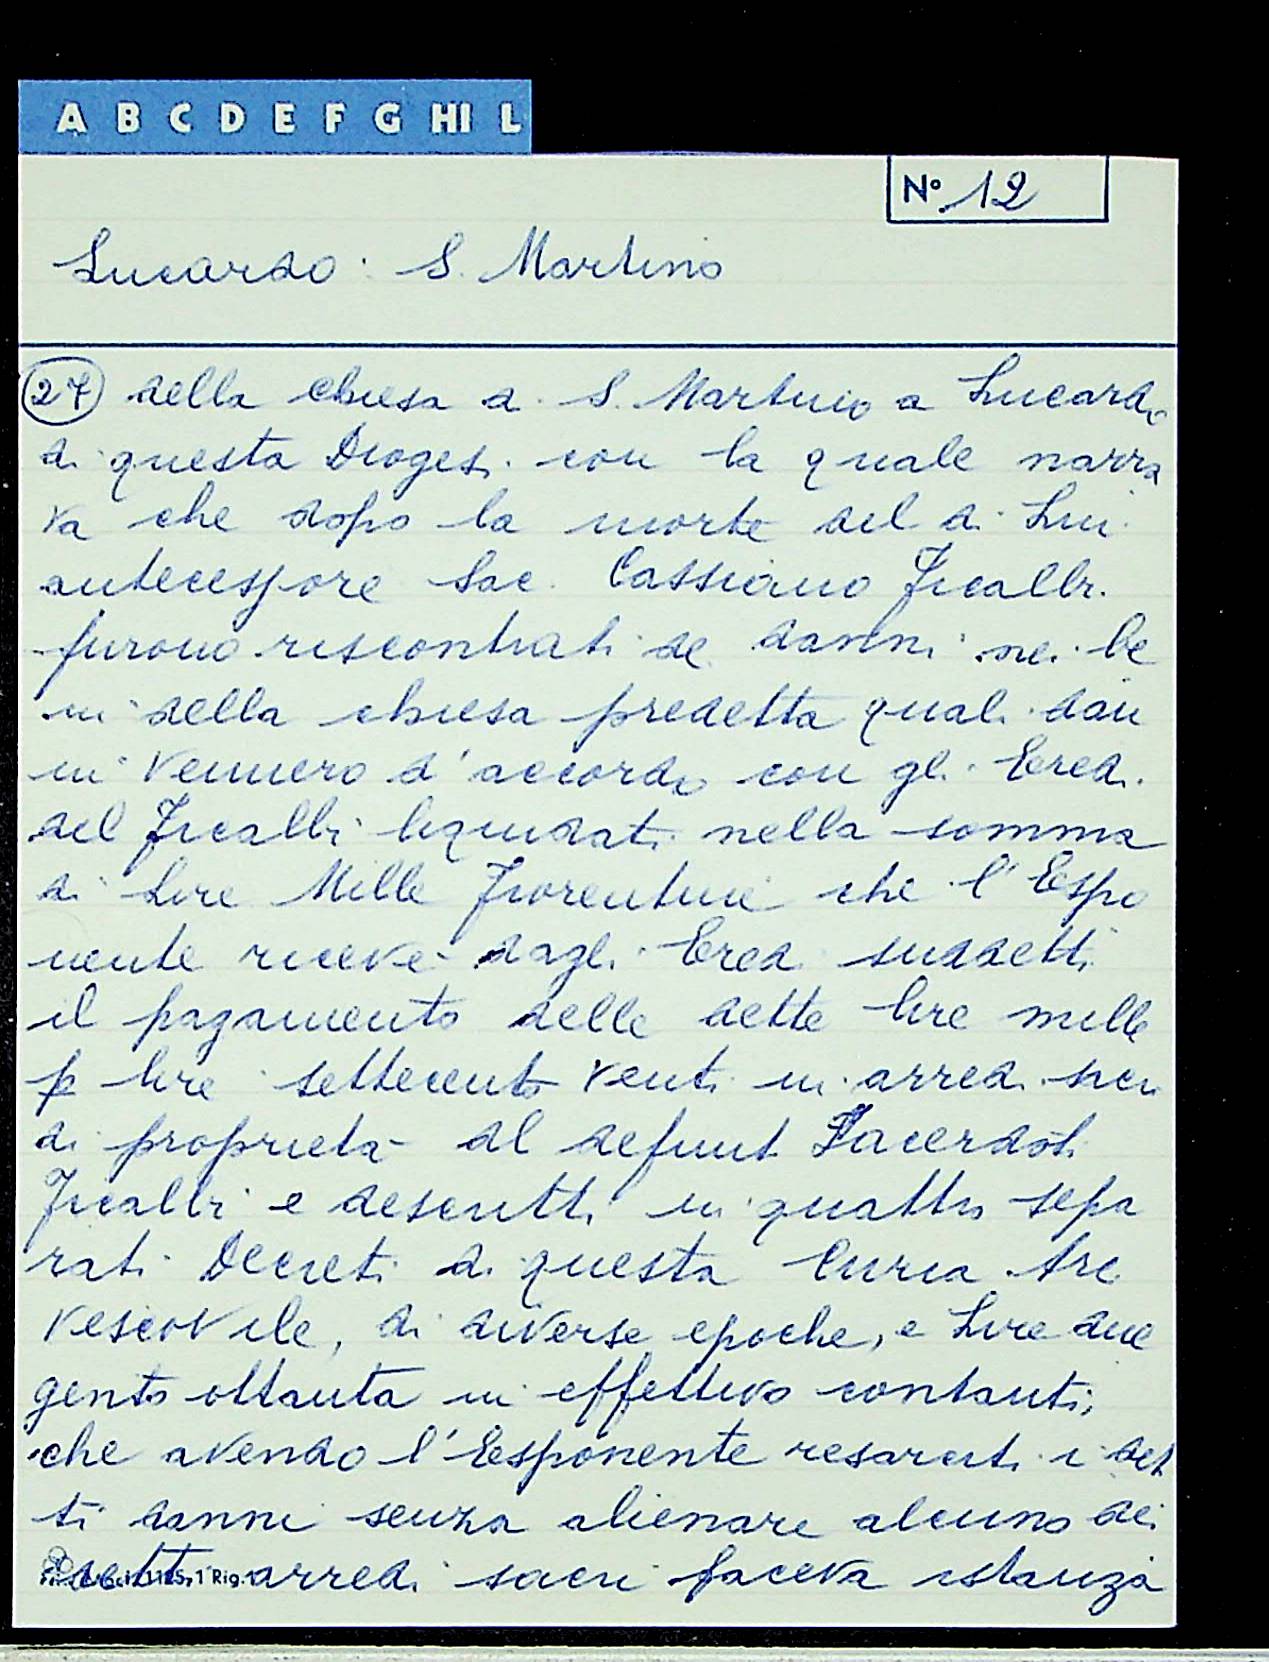 A B C D E F G HI L
N° 12
Lucardo: S. Martino
27 della chiesa di S. Martino a Lucardo
di questa Diogesi con la quale narra
va che dopo la morte del di Lui
antecessore Sac. Cassiano Ficalbi
furono riscontrati de danni nei be
ni della chiesa predetta quali dan
ni vennero d'accordo con gli Eredi
del Ficalbi liquidati nella somma
di Lire Mille Fiorentine che l'Espo
nente riceve dagli Eredi suddetti
il pagamento delle dette lire mille
p lire settecento venti in arredi sacri
di proprietà del defunto Sacerdote
Ficalbi e descritti in quattro sepa
rati Decreti di questa Curia Arci
vescovile, di diverse epoche, e Lire due
gento ottanta in effettivo contanti;
che avendo l'Esponente resarciti i det
ti danni senza alienare alcuno dei
detti arredi sacri faceva istanza